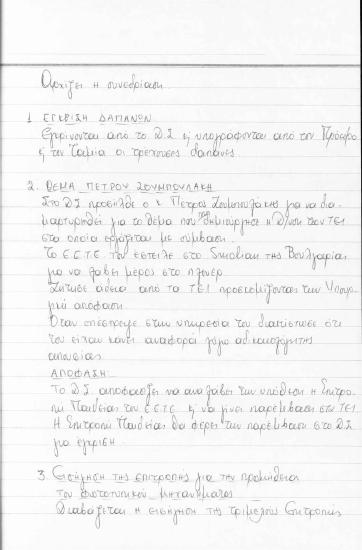 Αρχίζει η συνεδρίαση.
1 ΕΓΚΡΙΣΗ ΔΑΠΑΝΩΝ
Εγκρίνονται από το Δ.Σ ή υπογράφονται από τον Πρόεδρο
ή τον Ταμία οι τρέχουσες δαπάνες.
2. ΘΕΜΑ ΠΕΤΡΟΥ ΖΟΥΜΠΟΥΛΑΚΗ
Στο Δ.Σ προσήλθε ο κ Πέτρος Ζουμπουλάκης για να δια-
μαρτυρηθεί για το θέμα που του δημιούργησε η Δ/νση των ΤΕΙ
στα οποία εργάζεται με σύμβαση.
Το Ε.Ε.Τ.Ε τον έστειλε στο Smolian της Βουλγαρίας
για να λάβει μέρος στο πλενέρ.
Ζήτησε άδεια από τα ΤΕΙ προσκομίζοντας την Υπουρ-
γική απόφαση.
Όταν επέστρεψε στην υπηρεσία του διαπίστωσε ότι
του είχαν κάνει αναφορά λόγω αδικαιολόγητης
απουσίας.
ΑΠΟΦΑΣΗ:
Το Δ.Σ. αποφασίζει να αναλάβει την υπόθεση η Επιτρο-
πή Παιδείας του Ε.Ε.Τ.Ε ή να γίνει παρέμβαση στα ΤΕΙ.
Η Επιτροπή Παιδείας θα φέρει την παρέμβαση στο Δ.Σ
για έγκριση.
3. Εισήγηση της επιτροπής για την προμήθεια
του φωτοτυπικού μηχανήματος
Διαβάζεται η εισήγηση της τριμελούς Επιτροπής